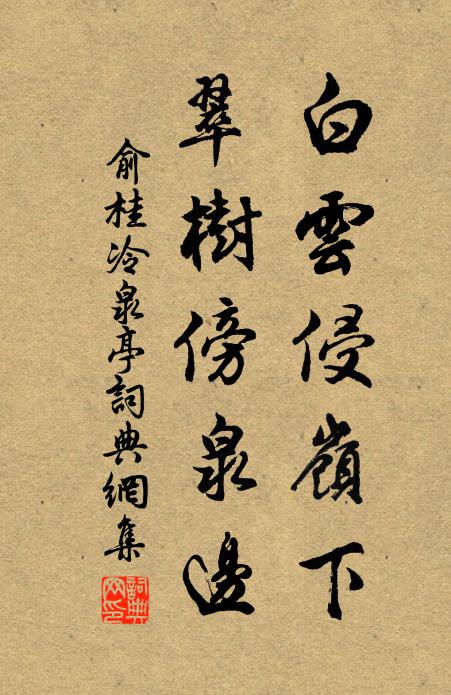 白雲侵嶺下
翠樹傍泉邊
俞桂冷泉亭詞典網集
詞典網印